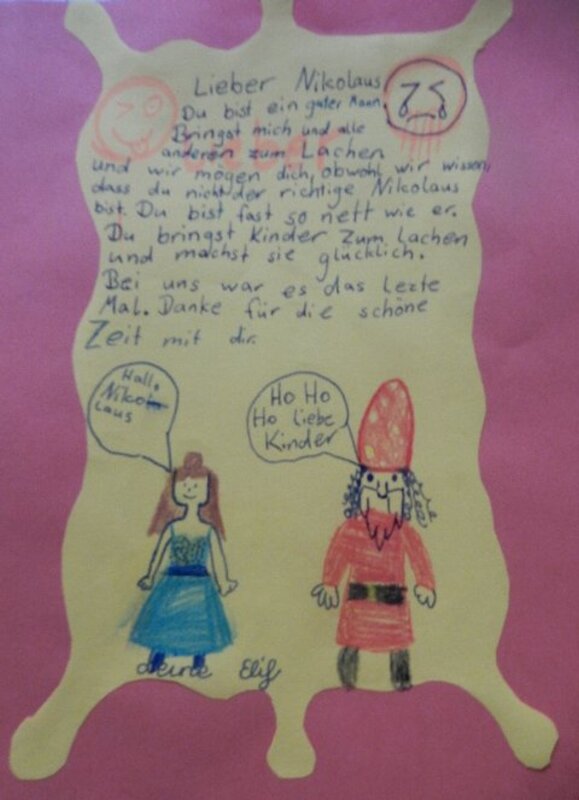 Lieber Nikolaus
Du bist ein guter Mann.
Bringst mich und alle
anderen zum Lachen
und wir mögen dich, obwohl wir wissen,
dass du nicht der richtige Nikolaus
bist. Du bist fast so nett wie er.
Du bringst Kinder zum lachen
und machst sie glücklich.
Bei uns war es das lezte
Mal. Danke für die schöne
Zeit mit dir.
Hallo
Niko
laus
Ho Ho
Ho liebe
Kinder
deine Elif